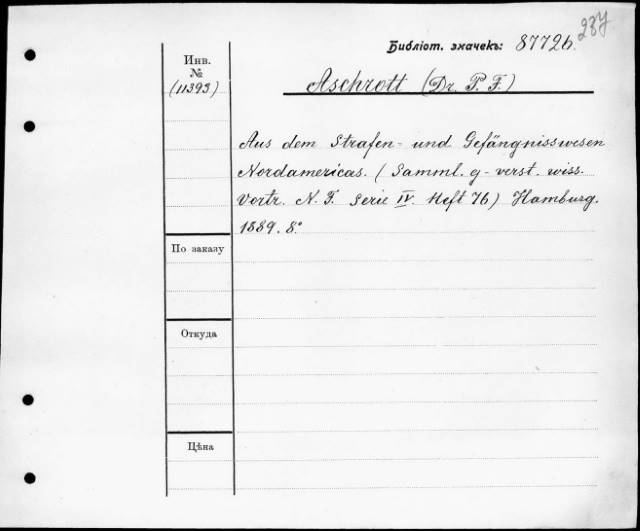 237
Библіот. значекъ: 87726.
Инв.
№
(11393)
Aschrott (Dr. P. F.)
Aus dem Strafen- und Gefängnisswesen
Nordamericas. (Samml. g-verst. wiss.
Vortr. N. F. Serie IV. Heft 76) Hamburg.
1889. 8.°
По заказу
Откуда
Цѣна